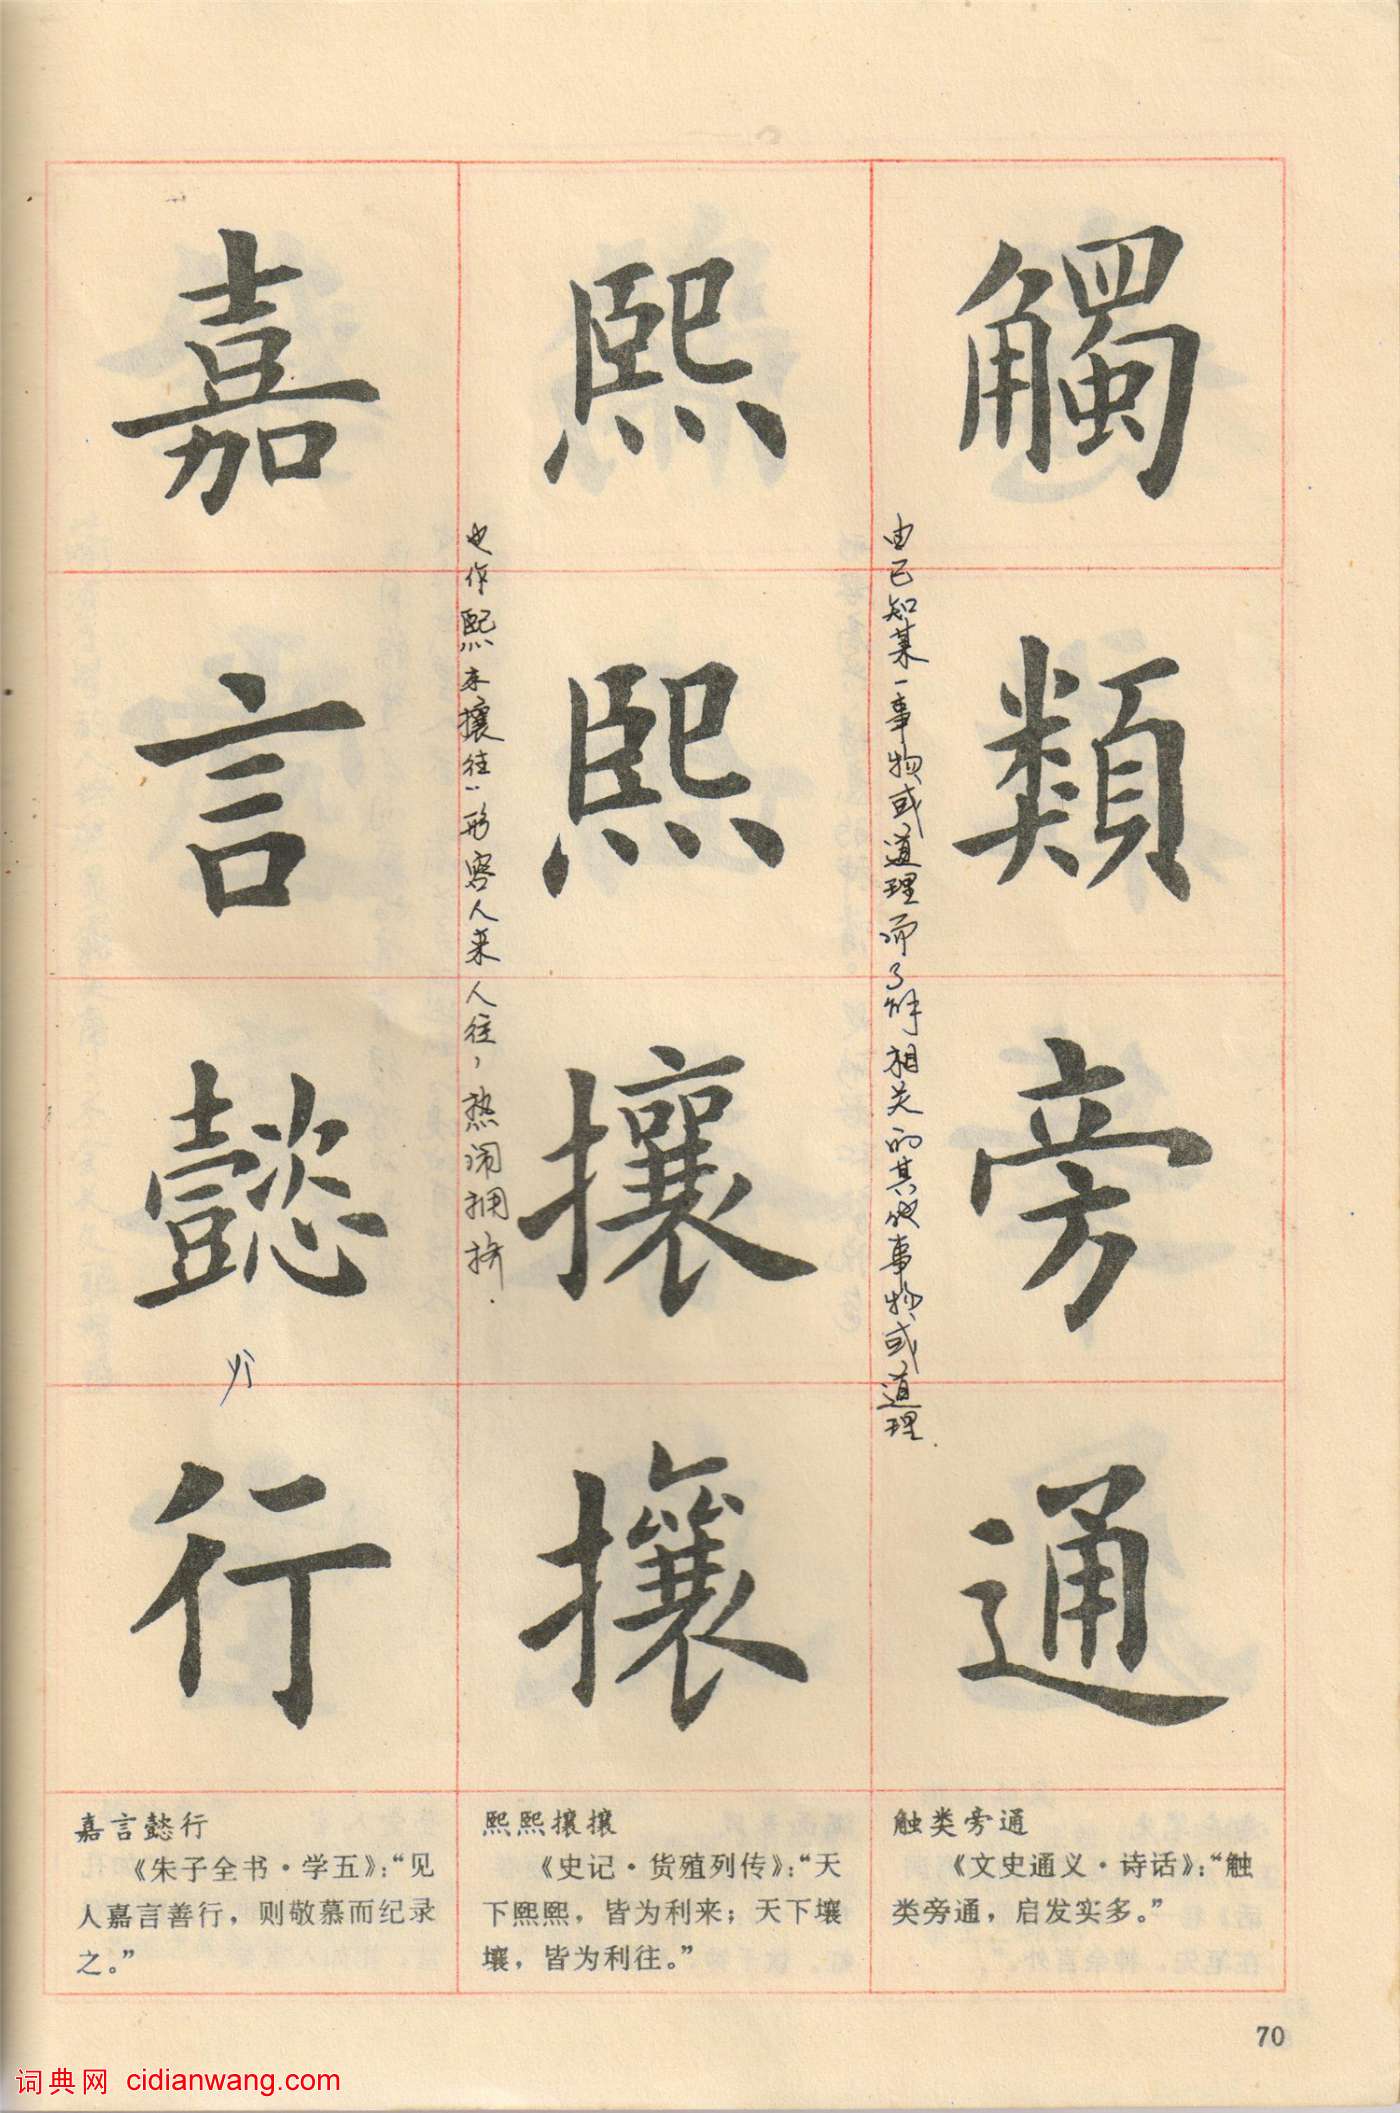 觸類旁通
由已知某一事物或道理而了解相关的其他事物或道理.
熙熙攘攘
也作熙来攘往:形容人来人往,热闹拥挤.
嘉言懿行
触类旁通
《文史通义·诗话》:“触
类旁通，启发实多。”
熙熙攘攘
《史记·货殖列传》:“天
下熙熙，皆为利来；天下壤
壤，皆为利往。”
嘉言懿行
《朱子全书·学五》:“见
人嘉言善行，则敬慕而纪录
之。”
70
词典网 cidianwang.com